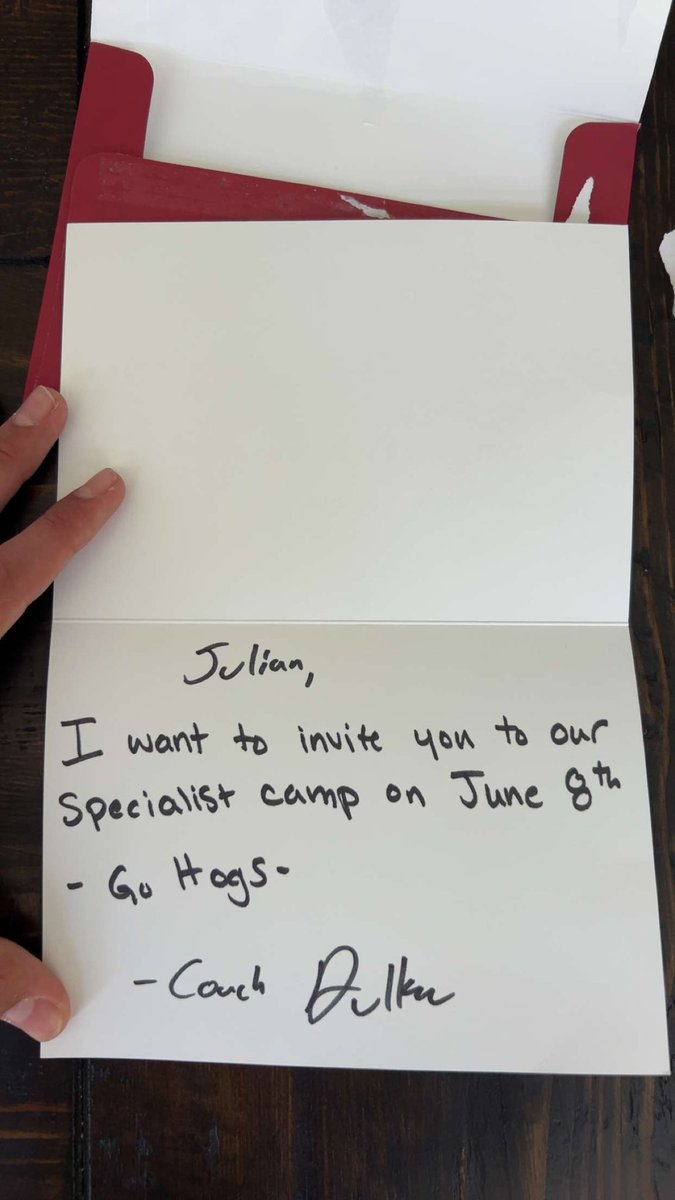 Julian,
I want to invite you to our
Specialist camp on June 8th
- Go Hogs-
- Coach